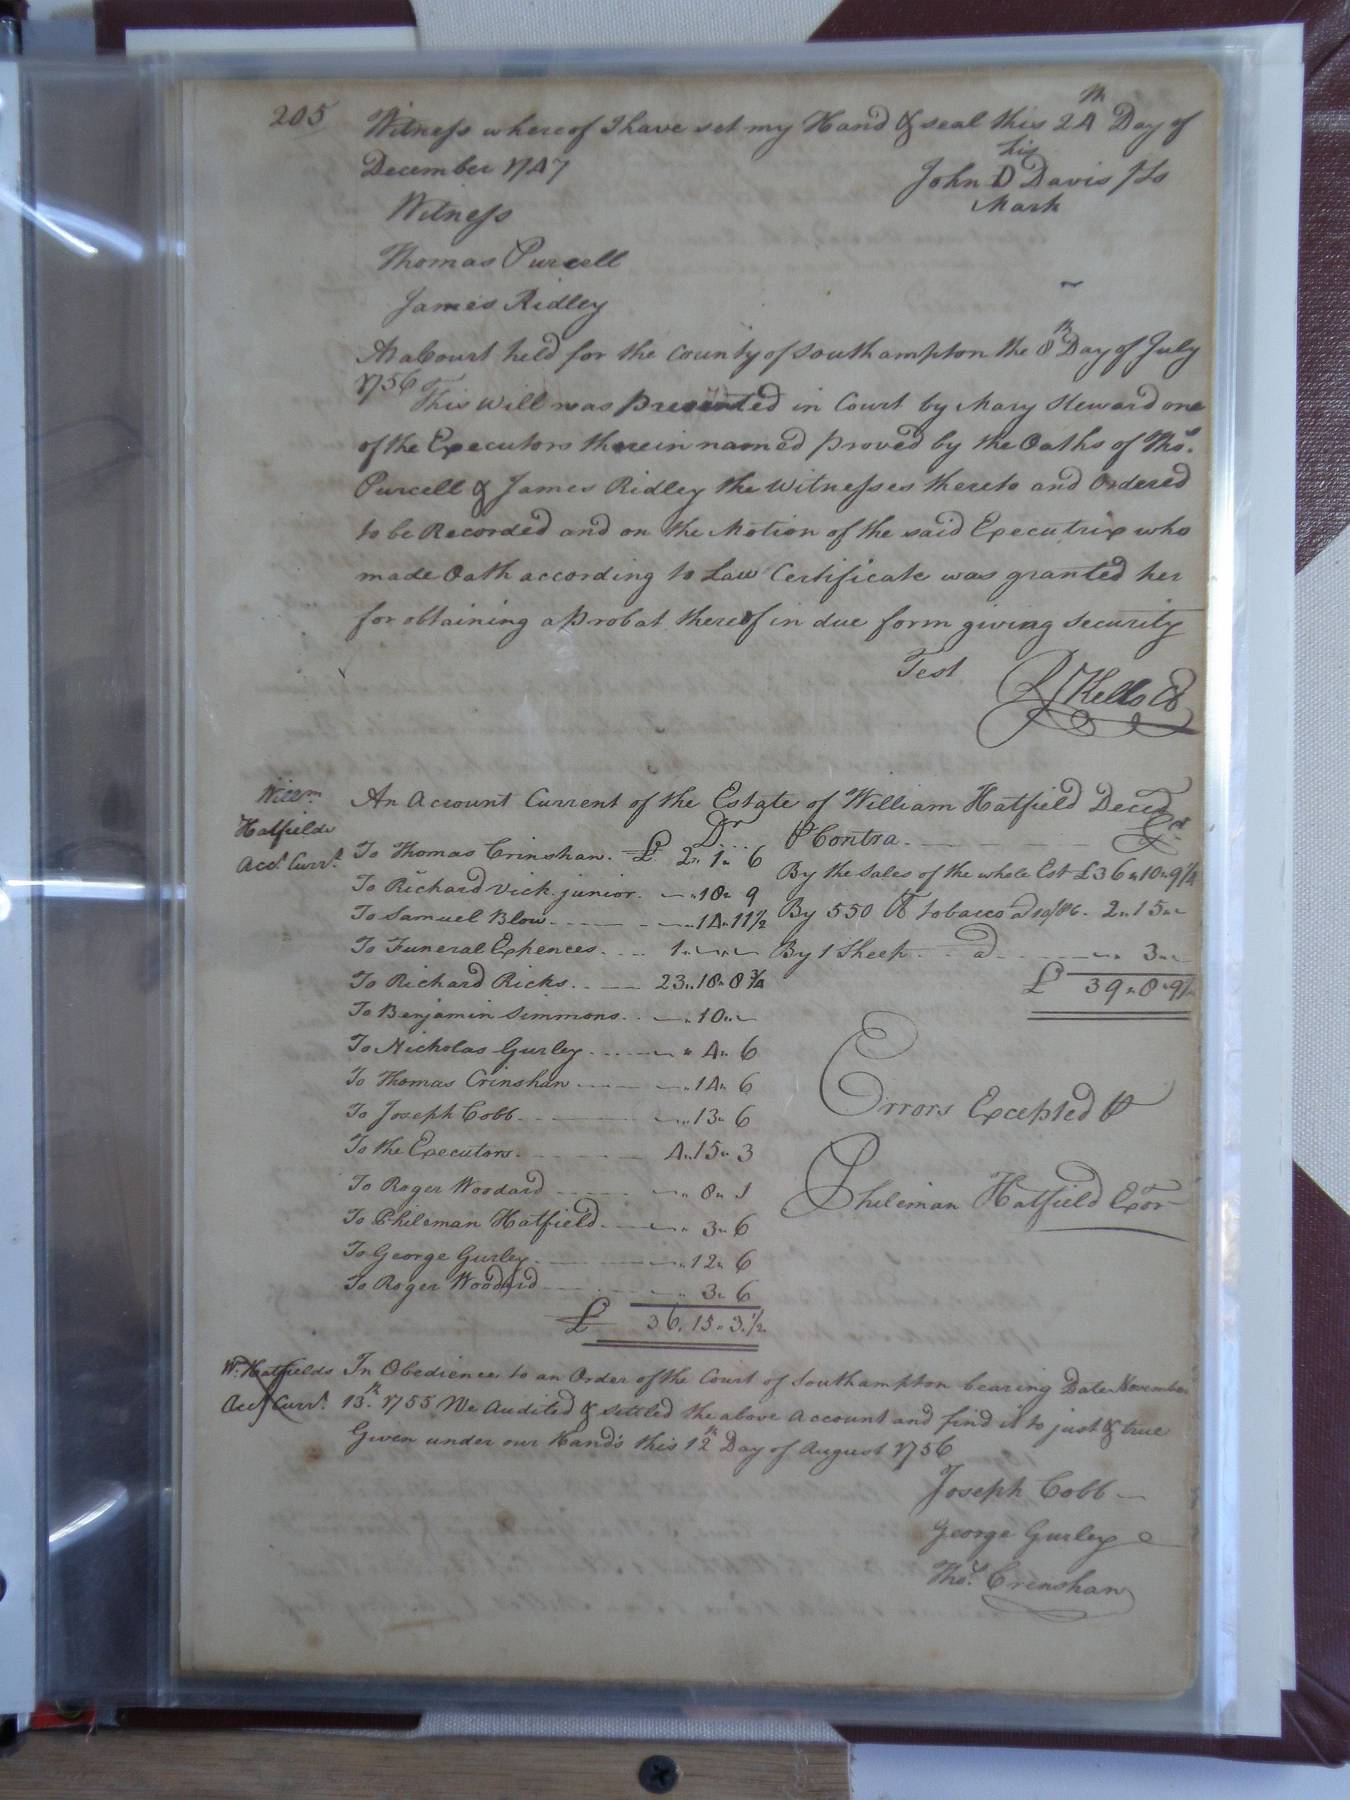 205
Witness whereof I have set my Hand & seal this 24th Day of
December 1747
his
John D Davis Ls
Mark
Witness
Thomas Purcell
James Ridley
At a Court held for the County of Southampton the 8th Day of July
1756
This Will was presented in Court by Mary Steward one
of the Executors therein named proved by the Oaths of Thos.
Purcell & James Ridley the Witnesses thereto and Ordered
to be Recorded and on the Motion of the said Executrix who
made Oath according to Law Certificate was granted her
for obtaining a probat thereof in due form giving security
Test
Rd Kello Cl
Willm
Hatfields
Acct. Currt.
An Account Current of the Estate of William Hatfield Decd
Dr
To Thomas Crinshaw. £ 2.. 1.. 6
To Richard Vick junior. — .. 18.. 9
To Samuel Blow — .. 14.. 11½
To Funeral Expences 1.. — .. —
To Richard Ricks 23.. 18.. 8¾
To Benjamin Simmons — .. 10.. —
To Nicholas Gurley — .. 4.. 6
To Thomas Crinshaw — .. 14.. 6
To Joseph Cobb — .. 13.. 6
To the Executors. 4.. 15.. 3
To Roger Woodard — .. 8.. 1
To Phileman Hatfield — .. 3.. 6
To George Gurley — .. 12.. 6
To Roger Woodard 3.. 6
£ 36. 15.. 3.½
P Contra Cr
By the Sales of the whole Est £36..10..9¼
By 550 lb tobacco a 10/ 2..15..—
By 1 Sheep a — .. 3..—
£ 39..8..9¼
Errors Excepted P
Phileman Hatfield Exor
Wm. Hatfields
Acct Currt.
In Obedience to an Order of the Court of Southampton bearing Date November
13th. 1755 We Audited & settled the above Account and find it to just & true
Given under our Hands this 12th Day of August 1756
Joseph Cobb
George Gurley
Thos. Crenshaw